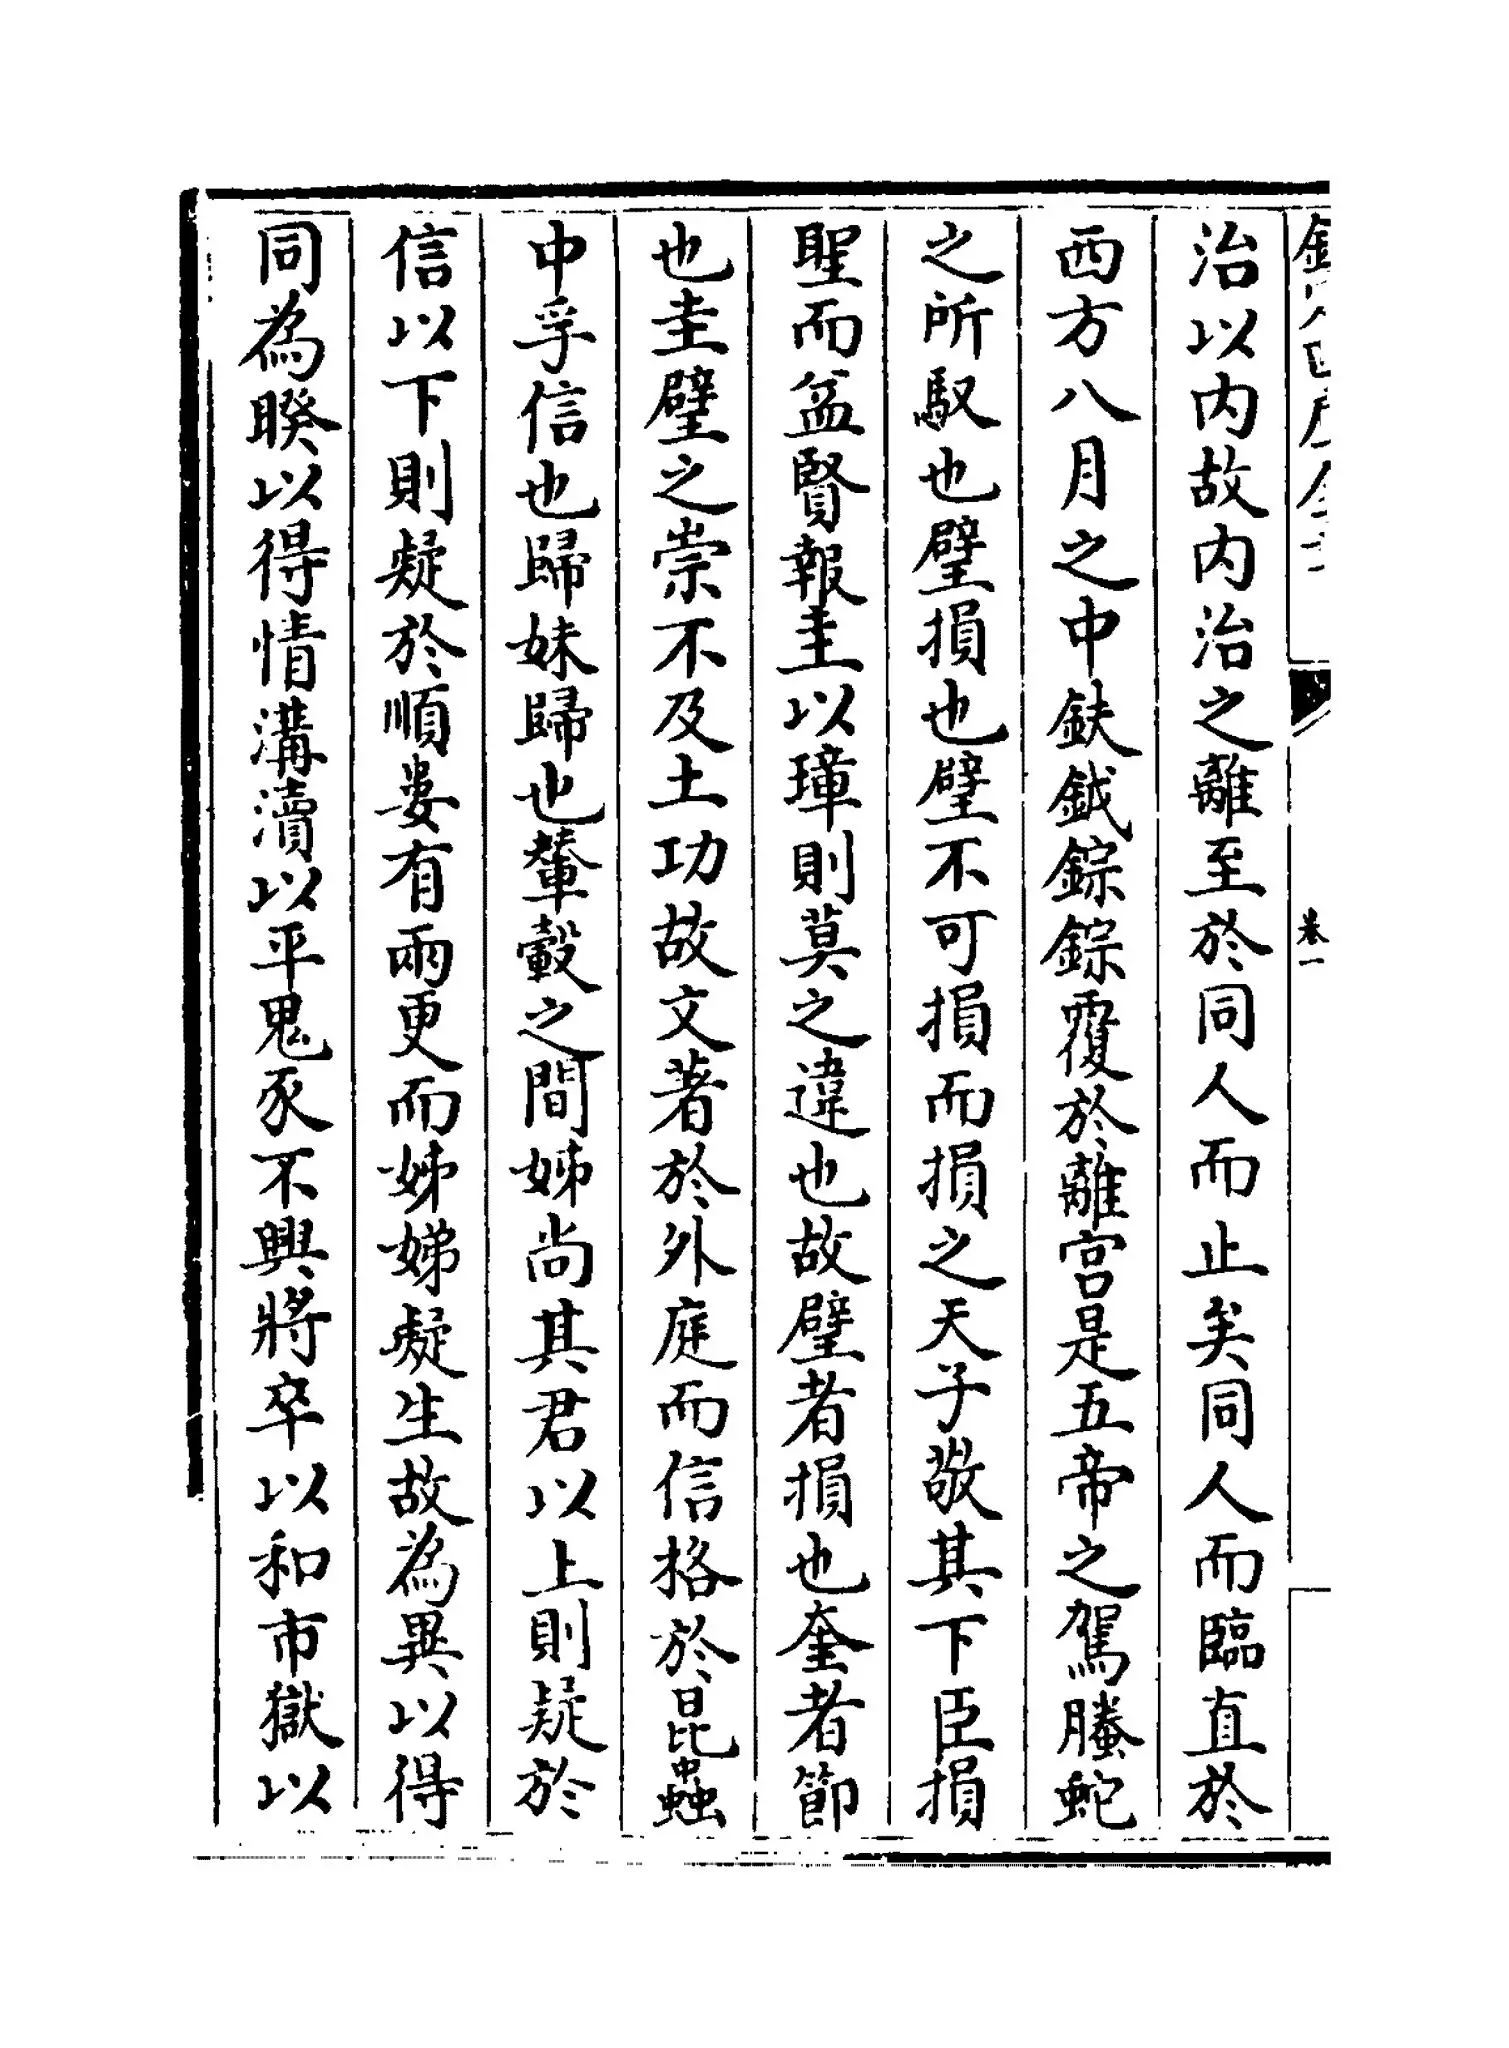 欽定四庫全書
卷一
治以内故内治之離至於同人而止矣同人而臨直於
西方八月之中鈇鉞錝錝覆於離宫是五帝之駕螣蛇
之所馭也壁損也壁不可損而損之天子敬其下臣損
聖而益賢報圭以璋則莫之違也故壁者損也奎者節
也圭璧之崇不及土功故文著於外庭而信格於昆蟲
中孚信也歸妹歸也輦轂之間姊尚其君以上則疑於
信以下則疑於順婁有兩更而姊娣凝生故為異以得
同為睽以得情溝瀆以平鬼豕不興將卒以和市獄以